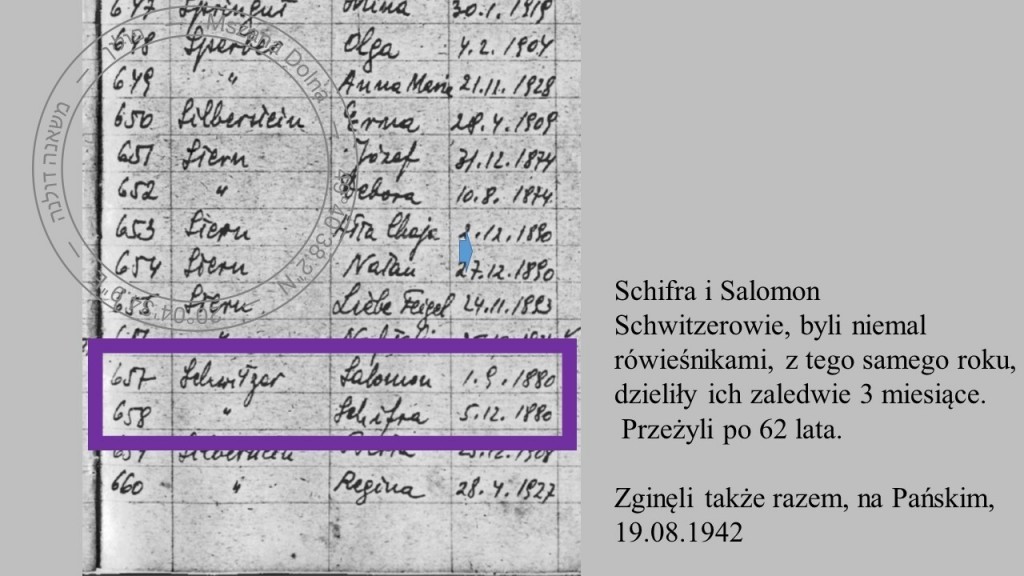 647 Springut Mina 30.1.1919
648 Sperber Olga 4.2.1904
649 " Anna Maria 21.11.1928
650 Silberstein Erna 28.4.1909
651 Stern Józef 31.12.1874
652 " Debora 10.8.1874
653 Stern Chaja 2.12.1890
654 Stern Natan 27.12.1890
655 Stern Liebe Feigel 24.11.1893
657 Schwitzer Salomon 1.9.1880
658 " Schifra 5.12.1880
659 Silberstein
660 " Regina 28.4.1927
Mszana Dolna
משאנה דולנה
Schifra i Salomon
Schwitzerowie, byli niemal
rówieśnikami, z tego samego roku,
dzieliły ich zaledwie 3 miesiące.
Przeżyli po 62 lata.
Zginęli także razem, na Pańskim,
19.08.1942